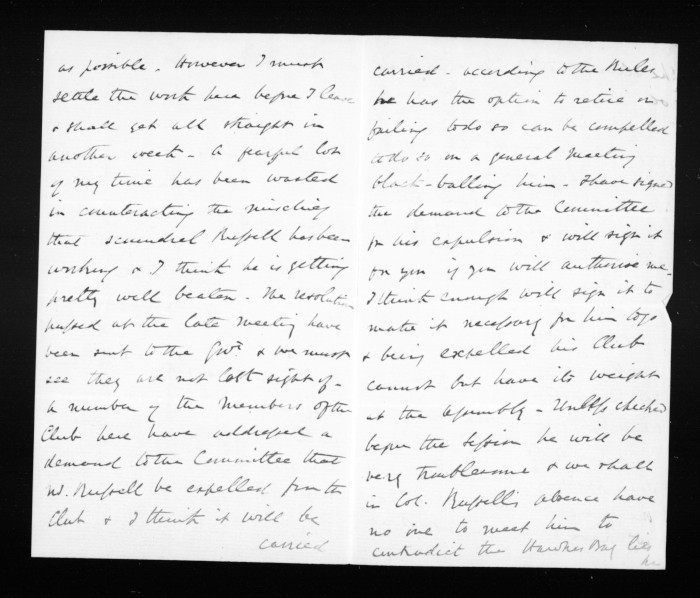 as possible. However I must
settle the work here before I leave
& shall get all straight in
another week - A fearful lot
of my time has been wasted
in counteracting the mischief
that scoundrel Russell has been
working & I think he is getting
pretty well beaten. The resolutions
passed at the late meeting have
been sent to the Govt & we must
see they are not lost sight of -
a number of the members of the
Club here have addressed a
demand to the Committee that
H. Russell be expelled from the
Club & I think it will be
carried
carried - according to the Rules
he has the option to retire or
failing to do so can be compelled
to do so on a general meeting
black-balling him - I have signed
the demand to the Committee
for his expulsion & will sign it
for you if you will authorise me.
I think enough will sign it to
make it necessary for him to go
& being expelled his Club
cannot but have its weight
at the Assembly - Unless checked
before the Session he will be
very troublesome & we shall
in Col. Russell's absence have
no one to meet him to
contradict the Hawkes Bay lies
he